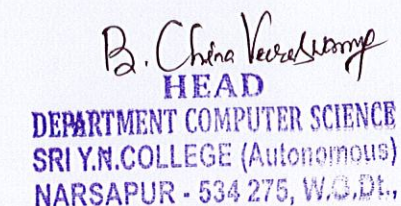 B. China Veeraswamy
HEAD
DEPARTMENT COMPUTER SCIENCE
SRI Y.N.COLLEGE (Autonomous)
NARSAPUR - 534 275, W.G.Dt.,